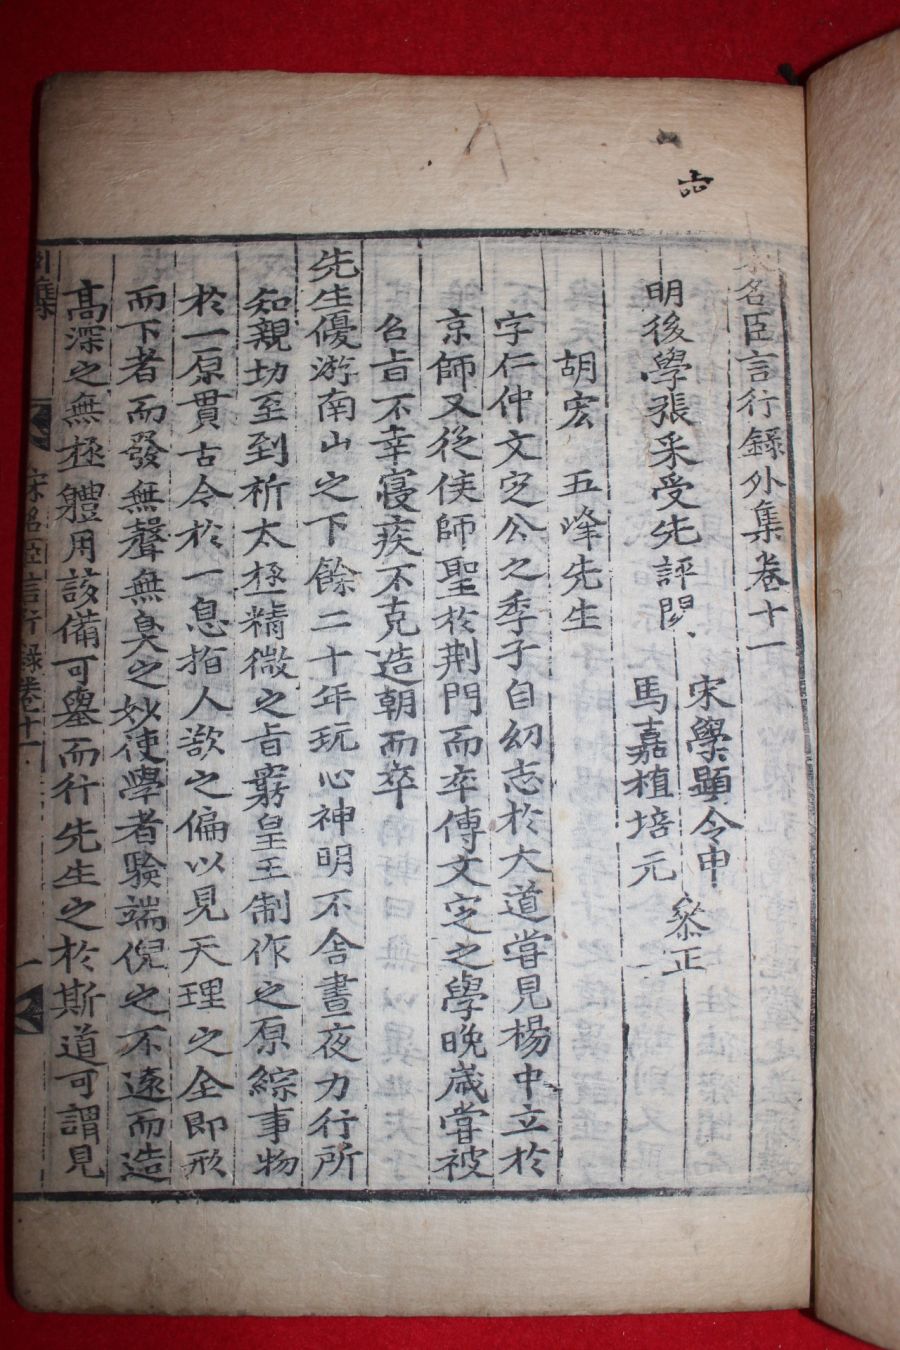 宋名臣言行錄外集卷十一
明後學張采受先評閱
宋學顯令申
馬嘉植培元
叅正
胡宏 五峰先生
字仁仲文定公之季子自幼志於大道嘗見楊中立於
京師又從侯師聖於荆門而卒傳文定之學晚歲嘗被
召旨不幸寢疾不克造朝而卒
先生優游南山之下餘二十年玩心神明不舍晝夜力行所
知親切至到析太極精微之旨窮皇王制作之原綜事物
於一原貫古今於一息指人欲之偏以見天理之全即形
而下者而發無聲無臭之妙使學者驗端倪之不遠而造
高深之無極體用該備可舉而行先生之於斯道可謂見
外集
宋名臣言行錄卷十一
一